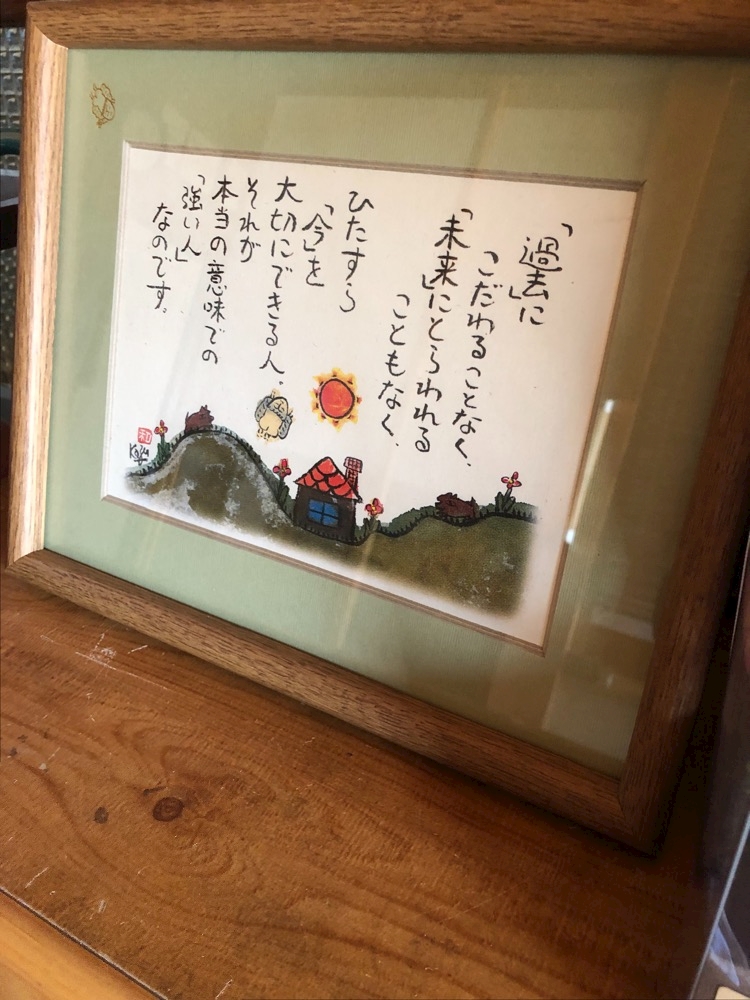 「過去」に
こだわることなく、
「未来」にとらわれる
こともなく、
ひたすら
「今」を
大切にできる人。
それが
本当の意味での
「強い人」
なのです。
和
Kazu